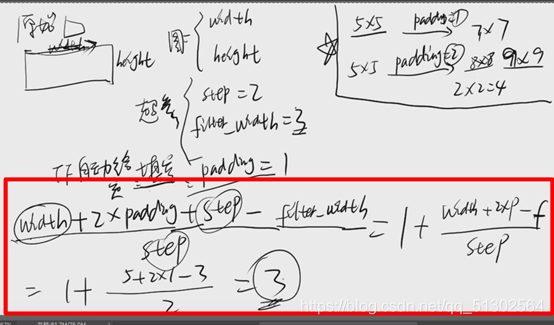 原始
width
height
图
width
height
step = 2
filter_width = 3
TF自动给填充
padding = 1
5×5 padding=1 7×7
5×5 padding=2 8×8 9×9
2×2=4
width + 2×padding + step - filter_width
step
= 1 + width + 2×p - f
step
= 1 + 5+2×1-3
2
= 3
https://blog.csdn.net/qq_51302564